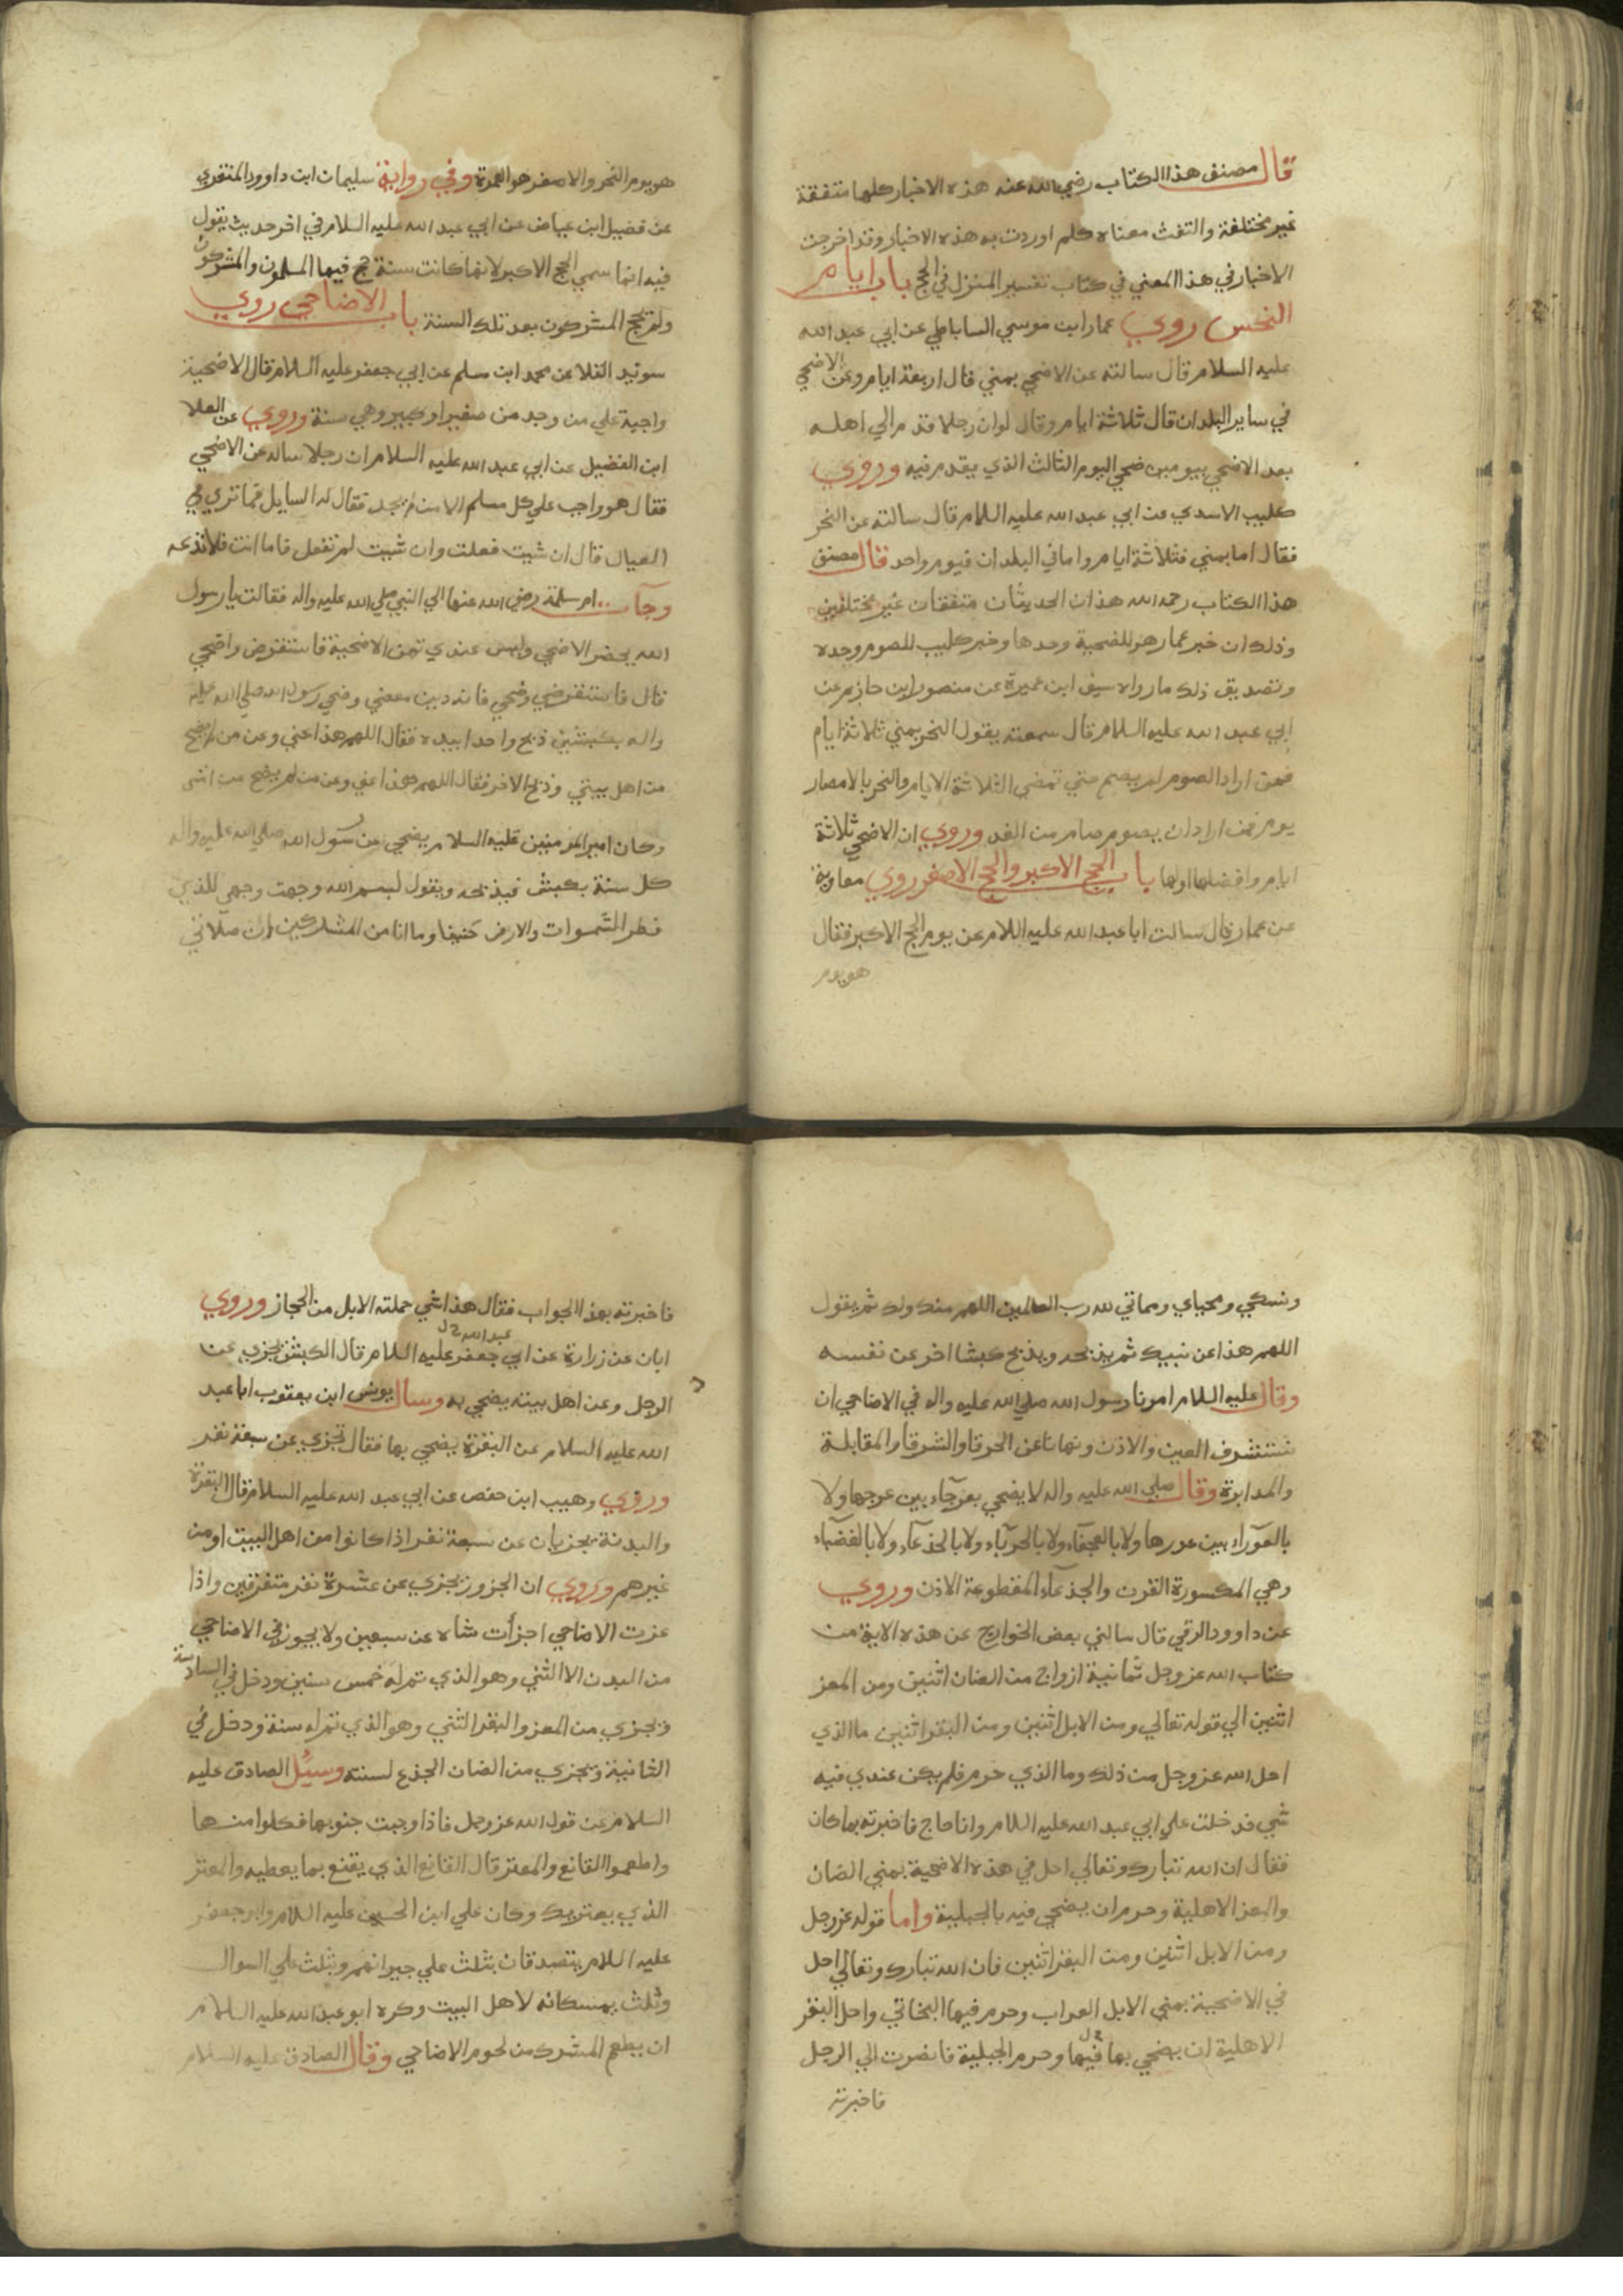 قال مصنف هذا الكتاب رضي الله عنه هذه الاخبار كلها متفقة
غير مختلفة والتفث معناه كلم اوردت به هذه الاخبار وقد اخرجت
الاخبار في هذا المعني في كتاب تفسير المنزل في الحج باب ايام
النحس روي عمار ابن موسي الساباطي عن ابي عبد الله
عليه السلام قال سالته عن الاضحي بمني قال اربعة ايام وعن الاضحي
في ساير البلدان قال ثلاثة ايام وقال لو ان رجلا قدم الي اهله
بعد الاضحي بيومين ضحي اليوم الثالث الذي يقدم فيه وروي
كليب الاسدي عن ابي عبد الله عليه السلام قال سالته عن النحر
فقال اما بمني فثلاثة ايام واما في البلدان فيوم واحد قال مصنف
هذا الكتاب رحمه الله هذان الحديثان متفقان غير مختلفين
وذلك ان خبر عمار هو للضحية وحدها وخبر كليب للصوم وحده
وتصديق ذلك ما رواه سيف ابن عميرة عن منصور ابن حازم عن
ابي عبد الله عليه السلام قال سمعته يقول النحر بمني ثلاثة ايام
فمن اراد الصوم لم يصم حتي تمضي الثلاثة الايام والنحر بالامصار
يوم فمن اراد ان يصوم صام من الغد وروي ان الاضحي ثلاثة
ايام وافضلها اولها باب الحج الاكبر والحج الاصغر روي معاوية
عن عمار قال سالت ابا عبد الله عليه السلام عن يوم الحج الاكبر فقال
هو يوم
هو يوم النحر والاصغر هو العمرة وفي رواية سليمان ابن داوود المنقري
عن فضيل ابن عياض عن ابي عبد الله عليه السلام في اخر حديث يقول
فيه انما سمي الحج الاكبر لانها كانت سنة حج فيها المسلمون والمشركون
ولم يحج المشركون بعد تلك السنة باب الاضاحي روي
سويد القلا عن محمد ابن مسلم عن ابي جعفر عليه السلام قال الاضحية
واجبة علي من وجد من صغير او كبير وهي سنة وروي عن العلا
ابن الفضيل عن ابي عبد الله عليه السلام ان رجلا ساله عن الاضحي
فقال هو واجب علي كل مسلم الا من لم يجد فقال له السايل فما تري في
العيال قال ان شيت فعلت وان شيت لم تفعل فاما انت فلا تدعه
وجآت ام سلمة رضي الله عنها الي النبي صلي الله عليه واله فقالت يا رسول
الله يحضر الاضحي وليس عندي ثمن الاضحية فاستقرض واضحي
قال فاستقرضي وضحي فانه دين مقضي وضحي رسول الله صلي الله عليه
واله بكبشين ذبح واحدا بيده فقال اللهم هذا عني وعن من لم يضح
من اهل بيتي وذبح الاخر فقال اللهم هذا عني وعن من لم يضح من امتي
وكان امير المومنين عليه السلام يضحي عن رسول الله صلي الله عليه واله
كل سنة بكبش فيذبحه ويقول لبسم الله وجهت وجهي للذي
فطر السموات والارض حنيفا وما انا من المشركين ان صلاتي
ونسكي ومحياي ومماتي لله رب العالمين اللهم منك ولك ثم يقول
اللهم هذا عن نبيك ثم يذبحه ويذبح كبشا اخر عن نفسه
وقال عليه السلام امرنا رسول الله صلي الله عليه واله في الاضاحي ان
نستشرف العين والاذن ونهانا عن الخرقا والشرقا والمقابلة
والمدابرة وقال صلي الله عليه واله لا يضحي بعرجآء بين عرجها ولا
بالعورآء بين عورها ولا بالعجفآء ولا بالجربآء ولا بالجذعآء ولا بالعضبآء
وهي المكسورة القرن والجذعآء المقطوعة الاذن وروي
عن داوود الرقي قال سالني بعض الخوارج عن هذه الاية من
كتاب الله عز وجل ثمانية ازواج من الضان اثنين ومن المعز
اثنين الي قوله تعالي ومن الابل اثنين ومن البقر اثنين ما الذي
احل الله عز وجل من ذلك وما الذي حرم فلم يكن عندي فيه
شي فدخلت علي ابي عبد الله عليه السلام وانا حاج فاخبرته بما كان
فقال ان الله تبارك وتعالي احل في هذه الاضحية بمني الضان
والمعز الاهلية وحرم ان يضحي فيه بالجبلية واما قوله عز وجل
ومن الابل اثنين ومن البقر اثنين فان الله تبارك وتعالي احل
في الاضحية بمني الابل العراب وحرم فيها البخاتي واحل البقر
الاهلية ان يضحي بها فيها وحرم الجبلية فانصرت الي الرجل
فاخبرته
فاخبرته بهذا الجواب فقال هذا شي حملته الابل من الحجاز وروي
عبد الله خ ل
ابان عن زرارة عن ابي جعفر عليه السلام قال الكبش يجزي عن
الرجل وعن اهل بيته يضحي به وسال يونس ابن يعقوب ابا عبد
الله عليه السلام عن البقرة يضحي بها فقال تجزي عن سبعة نفر
وروي وهيب ابن حفص عن ابي عبد الله عليه السلام قال البقرة
والبدنة يجزيان عن سبعة نفر اذا كانوا من اهل البيت او من
غيرهم وروي ان الجزور يجزي عن عشرة نفر متفرقين واذا
عزت الاضاحي اجزأت شاه عن سبعين ولا يجوز في الاضاحي
من البدن الا الثني وهو الذي تم له خمس سنين ودخل في السادسة
ويجزي من المعز والبقر الثني وهو الذي تم له سنة ودخل في
الثانية ويجزي من الضان الجذع لسنته وسئل الصادق عليه
السلام عن قول الله عز وجل فاذا وجبت جنوبها فكلوا منها
واطعموا القانع والمعتر قال القانع الذي يقنع بما يعطيه والمعتر
الذي يعتريك وكان علي ابن الحسين عليه السلام وابو جعفر
عليه السلام يتصدقان بثلث علي جيرانهم وبثلث علي السوال
وثلث يمسكانه لاهل البيت وكره ابو عبد الله عليه السلام
ان يطعم المشرك من لحوم الاضاحي وقال الصادق عليه السلام